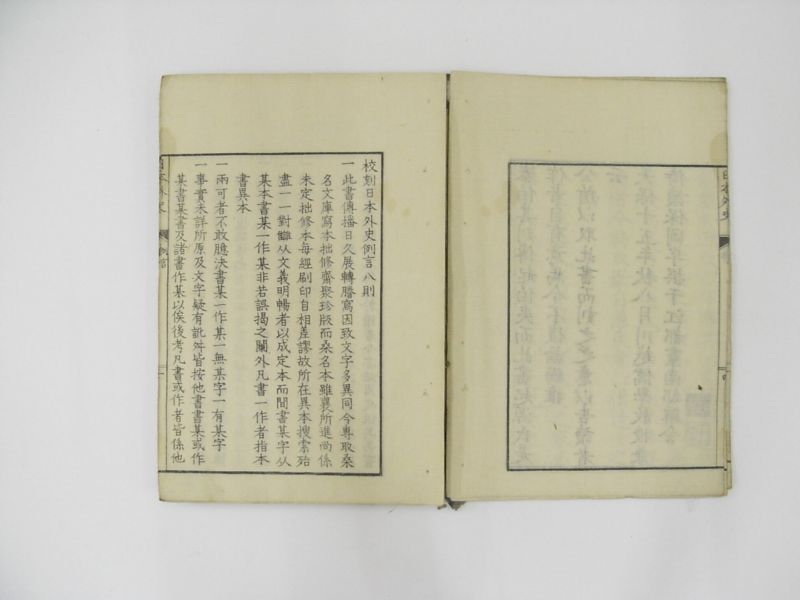 日本外史
校刻日本外史例言八則
一此書傳播日久展轉謄寫因致文字多異同今專取桑
名文庫寫本拙修齋聚珍版而桑名本雖襄所進尚係
未定拙修本每經刷印自相差謬故所在異本搜索殆
盡一一對讎从文義明暢者以成定本而間書某字从
某本書某一作某非若誤揭之闌外凡書一作者指本
書異本
一兩可者不敢臆決書某一作某一無某字一有某字
一事實未詳所原及文字疑有訛舛皆按他書書某或作
某書某書及諸書作某以俟後考凡書或作者皆係他
日本外史 例言 一